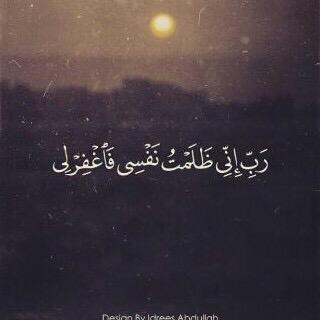 رَبِّ إِنِّي ظَلَمْتُ نَفْسِي فَٱغْفِرْ لِي
Design By Idrees Abdullah